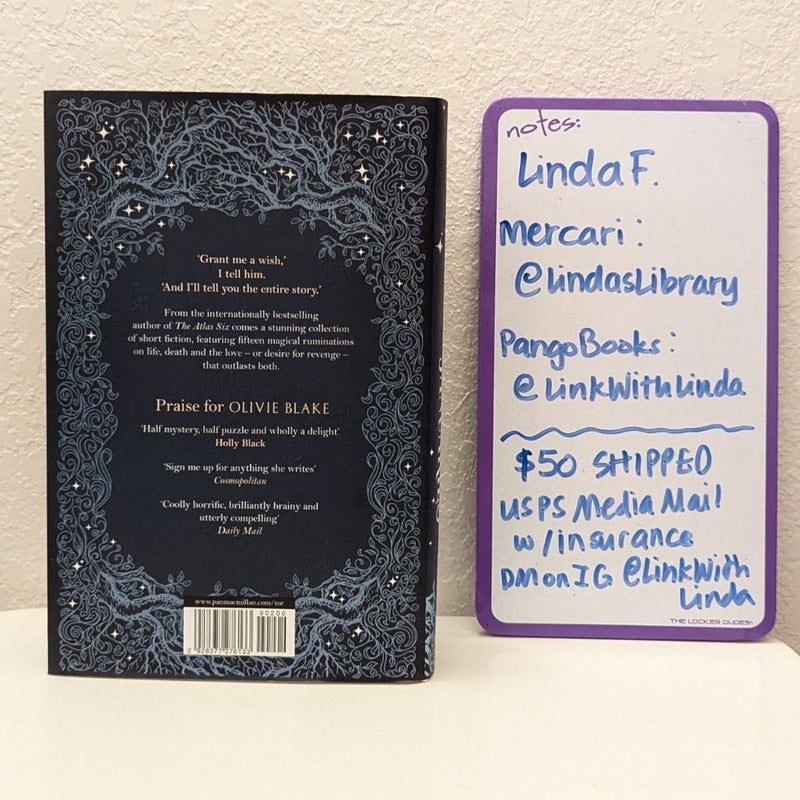 'Grant me a wish,'
I tell him.
'And I'll tell you the entire story.'
From the internationally bestselling
author of The Atlas Six comes a stunning collection
of short fiction, featuring fifteen magical ruminations
on life, death and the love – or desire for revenge –
that outlasts both.
Praise for OLIVIE BLAKE
'Half mystery, half puzzle and wholly a delight'
Holly Black
'Sign me up for anything she writes'
Cosmopolitan
'Coolly horrific, brilliantly brainy and
utterly compelling'
Daily Mail
www.panmacmillan.com/tor
90200
2 928377 276133
notes:
Linda F.
Mercari:
@lindasLibrary
PangoBooks:
@LinkWithLinda
$50 SHIPPED
USPS Media Mail
w/insurance
DM on IG @LinkWith
Linda
THE LOCKER DUDES